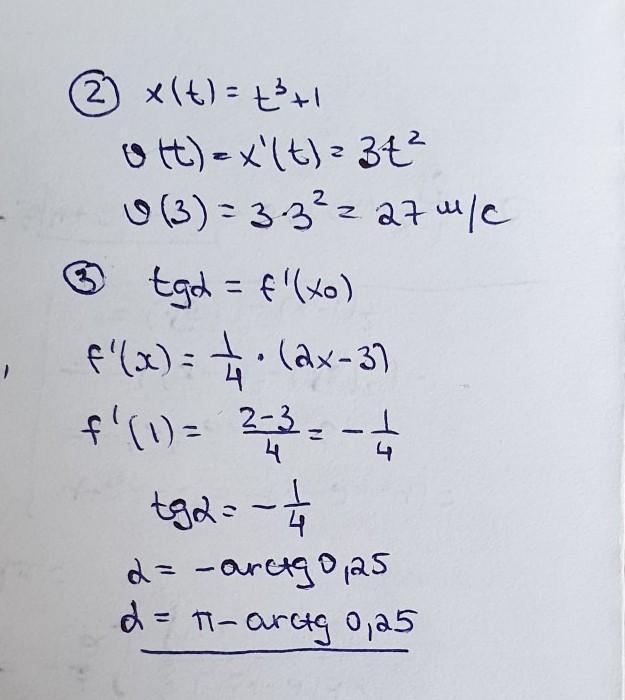 ② x(t) = t³+1
υ(t) = x'(t) = 3t²
υ(3) = 3·3² = 27 м/с
③ tgα = f'(x₀)
f'(x) = 1/4 · (2x-3)
f'(1) = (2-3)/4 = -1/4
tgα = -1/4
α = -arctg 0,25
α = π - arctg 0,25